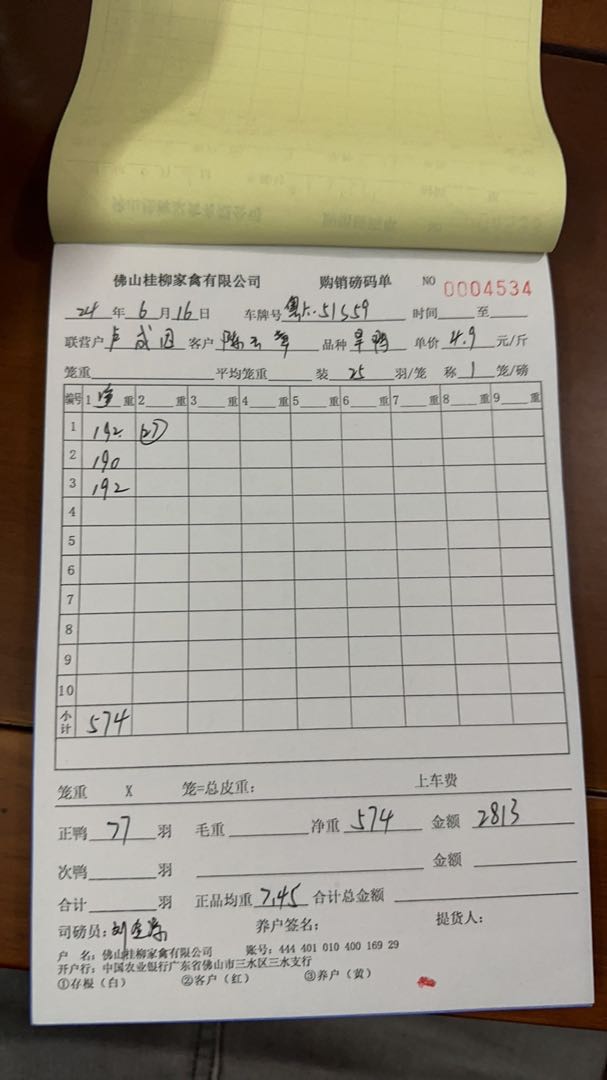 佛山桂柳家禽有限公司 购销磅码单 NO 0004534
24 年 6 月 16 日 车牌号 51559 时间 至
联营户 卢成 客户 陈 品种 旱鸭 单价 4.9 元/斤
笼重 平均笼重 装 25 羽/笼 称 1 笼/磅
编号 1 净 重 2 重 3 重 4 重 5 重 6 重 7 重 8 重 9 重
1 192 27
2 190
3 192
4
5
6
7
8
9
10
小计 574
笼重 X 笼=总皮重: 上车费
正鸭 77 羽 毛重 净重 574 金额 2813
次鸭 羽 金额
合计 羽 正品均重 7.45 合计总金额
司磅员: 刘 养户签名: 提货人:
户 名: 佛山桂柳家禽有限公司 账号: 444 401 010 400 169 29
开户行: 中国农业银行广东省佛山市三水区三水支行
①存根（白） ②客户（红） ③养户（黄）